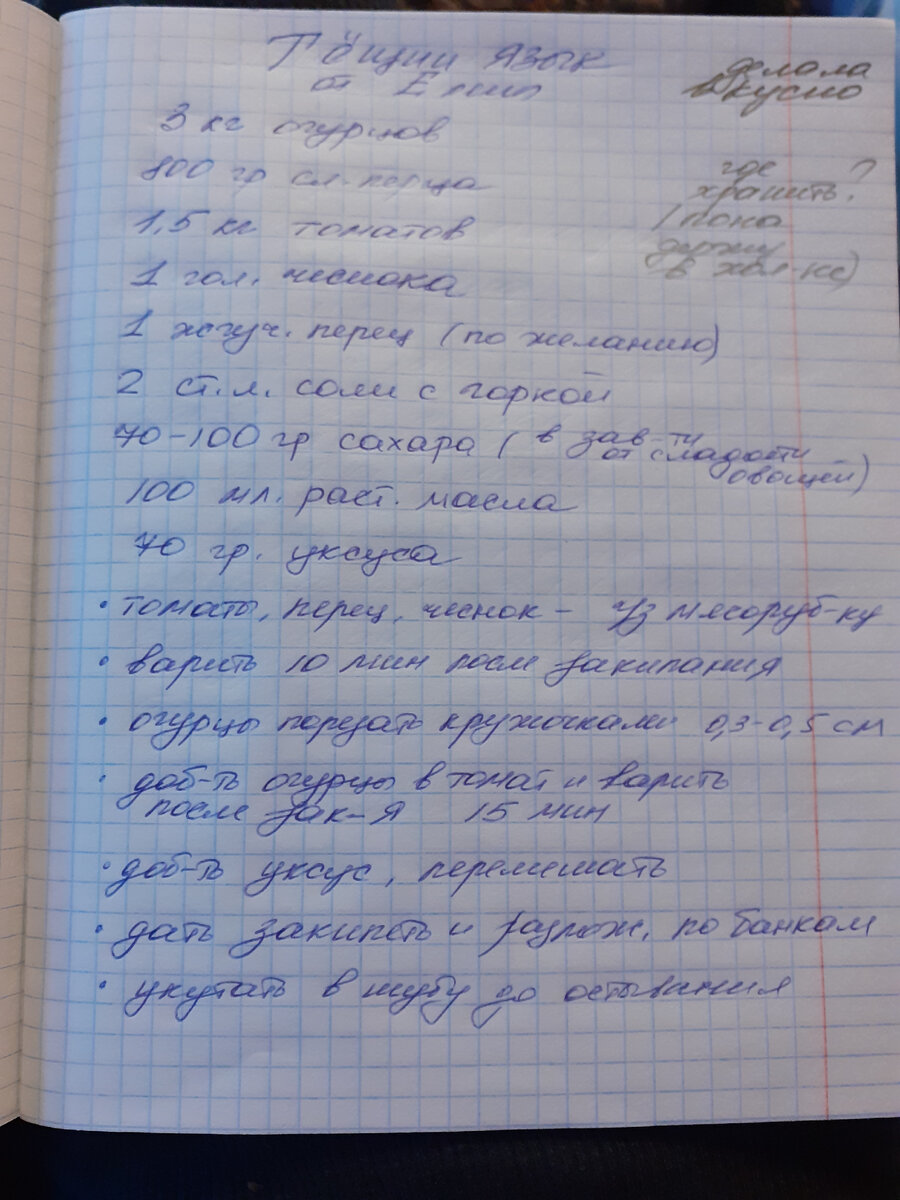 Тёщин язык
от Елены
делала
вкусно
3 кг огурцов
800 гр сл. перца
где
хранить?
(пока
держу
в хол-ке)
1,5 кг томатов
1 гол. чеснока
1 жгуч. перец (по желанию)
2 ст.л. соли с горкой
70-100 гр сахара (в зав-ти
от сладости
овощей)
100 мл. раст. масла
70 гр. уксуса
• томаты, перец, чеснок - ч/з мясоруб-ку
• варить 10 мин после закипания
• огурцы порезать кружочками 0,3-0,5 см
• доб-ть огурцы в томат и варить
после зак-я 15 мин
• доб-ть уксус, перемешать
• дать закипеть и разлож. по банкам
• укутать в шубу до остывания